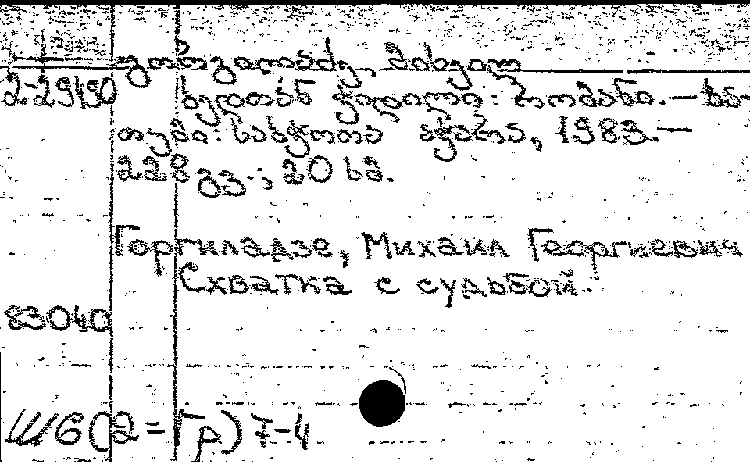 გორგილაძე, მიხეილ
2-29490 ბედთან ჭიდილი: რომანი.— ბა-
თუმი: საბჭოთა აჭარა, 1983.—
228 გვ.; 20 სმ.
Горгиладзе, Михаил Георгиевич
Схватка с судьбой.
83040
Ш6(2=Гр)7-4